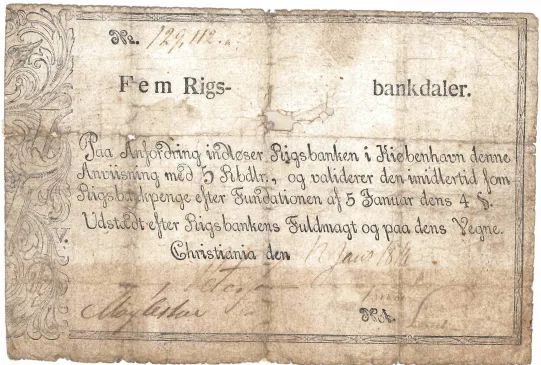 No. 129,112.
Fem Rigs- bankdaler.
Paa Anfordring indløser Rigsbanken i Kiøbenhavn denne
Anviisning med 5 Rbdlr., og validerer den imidlertid som
Rigsbankpenge efter Fundationen af 5 Januar dens 4 §.
Udstædt efter Rigsbankens Fuldmagt og paa dens Vegne.
Christiania den
V.
Not.